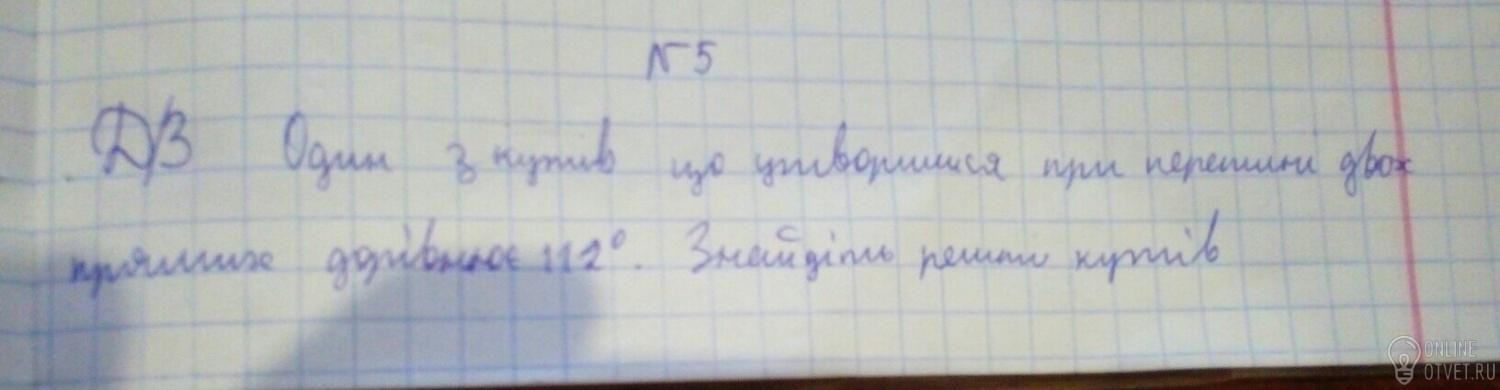 №5
ДЗ Один з кутів що утворилися при перетині двох
прямих дорівнює 112°. Знайдіть решти кутів
ONLINE
OTVET.RU